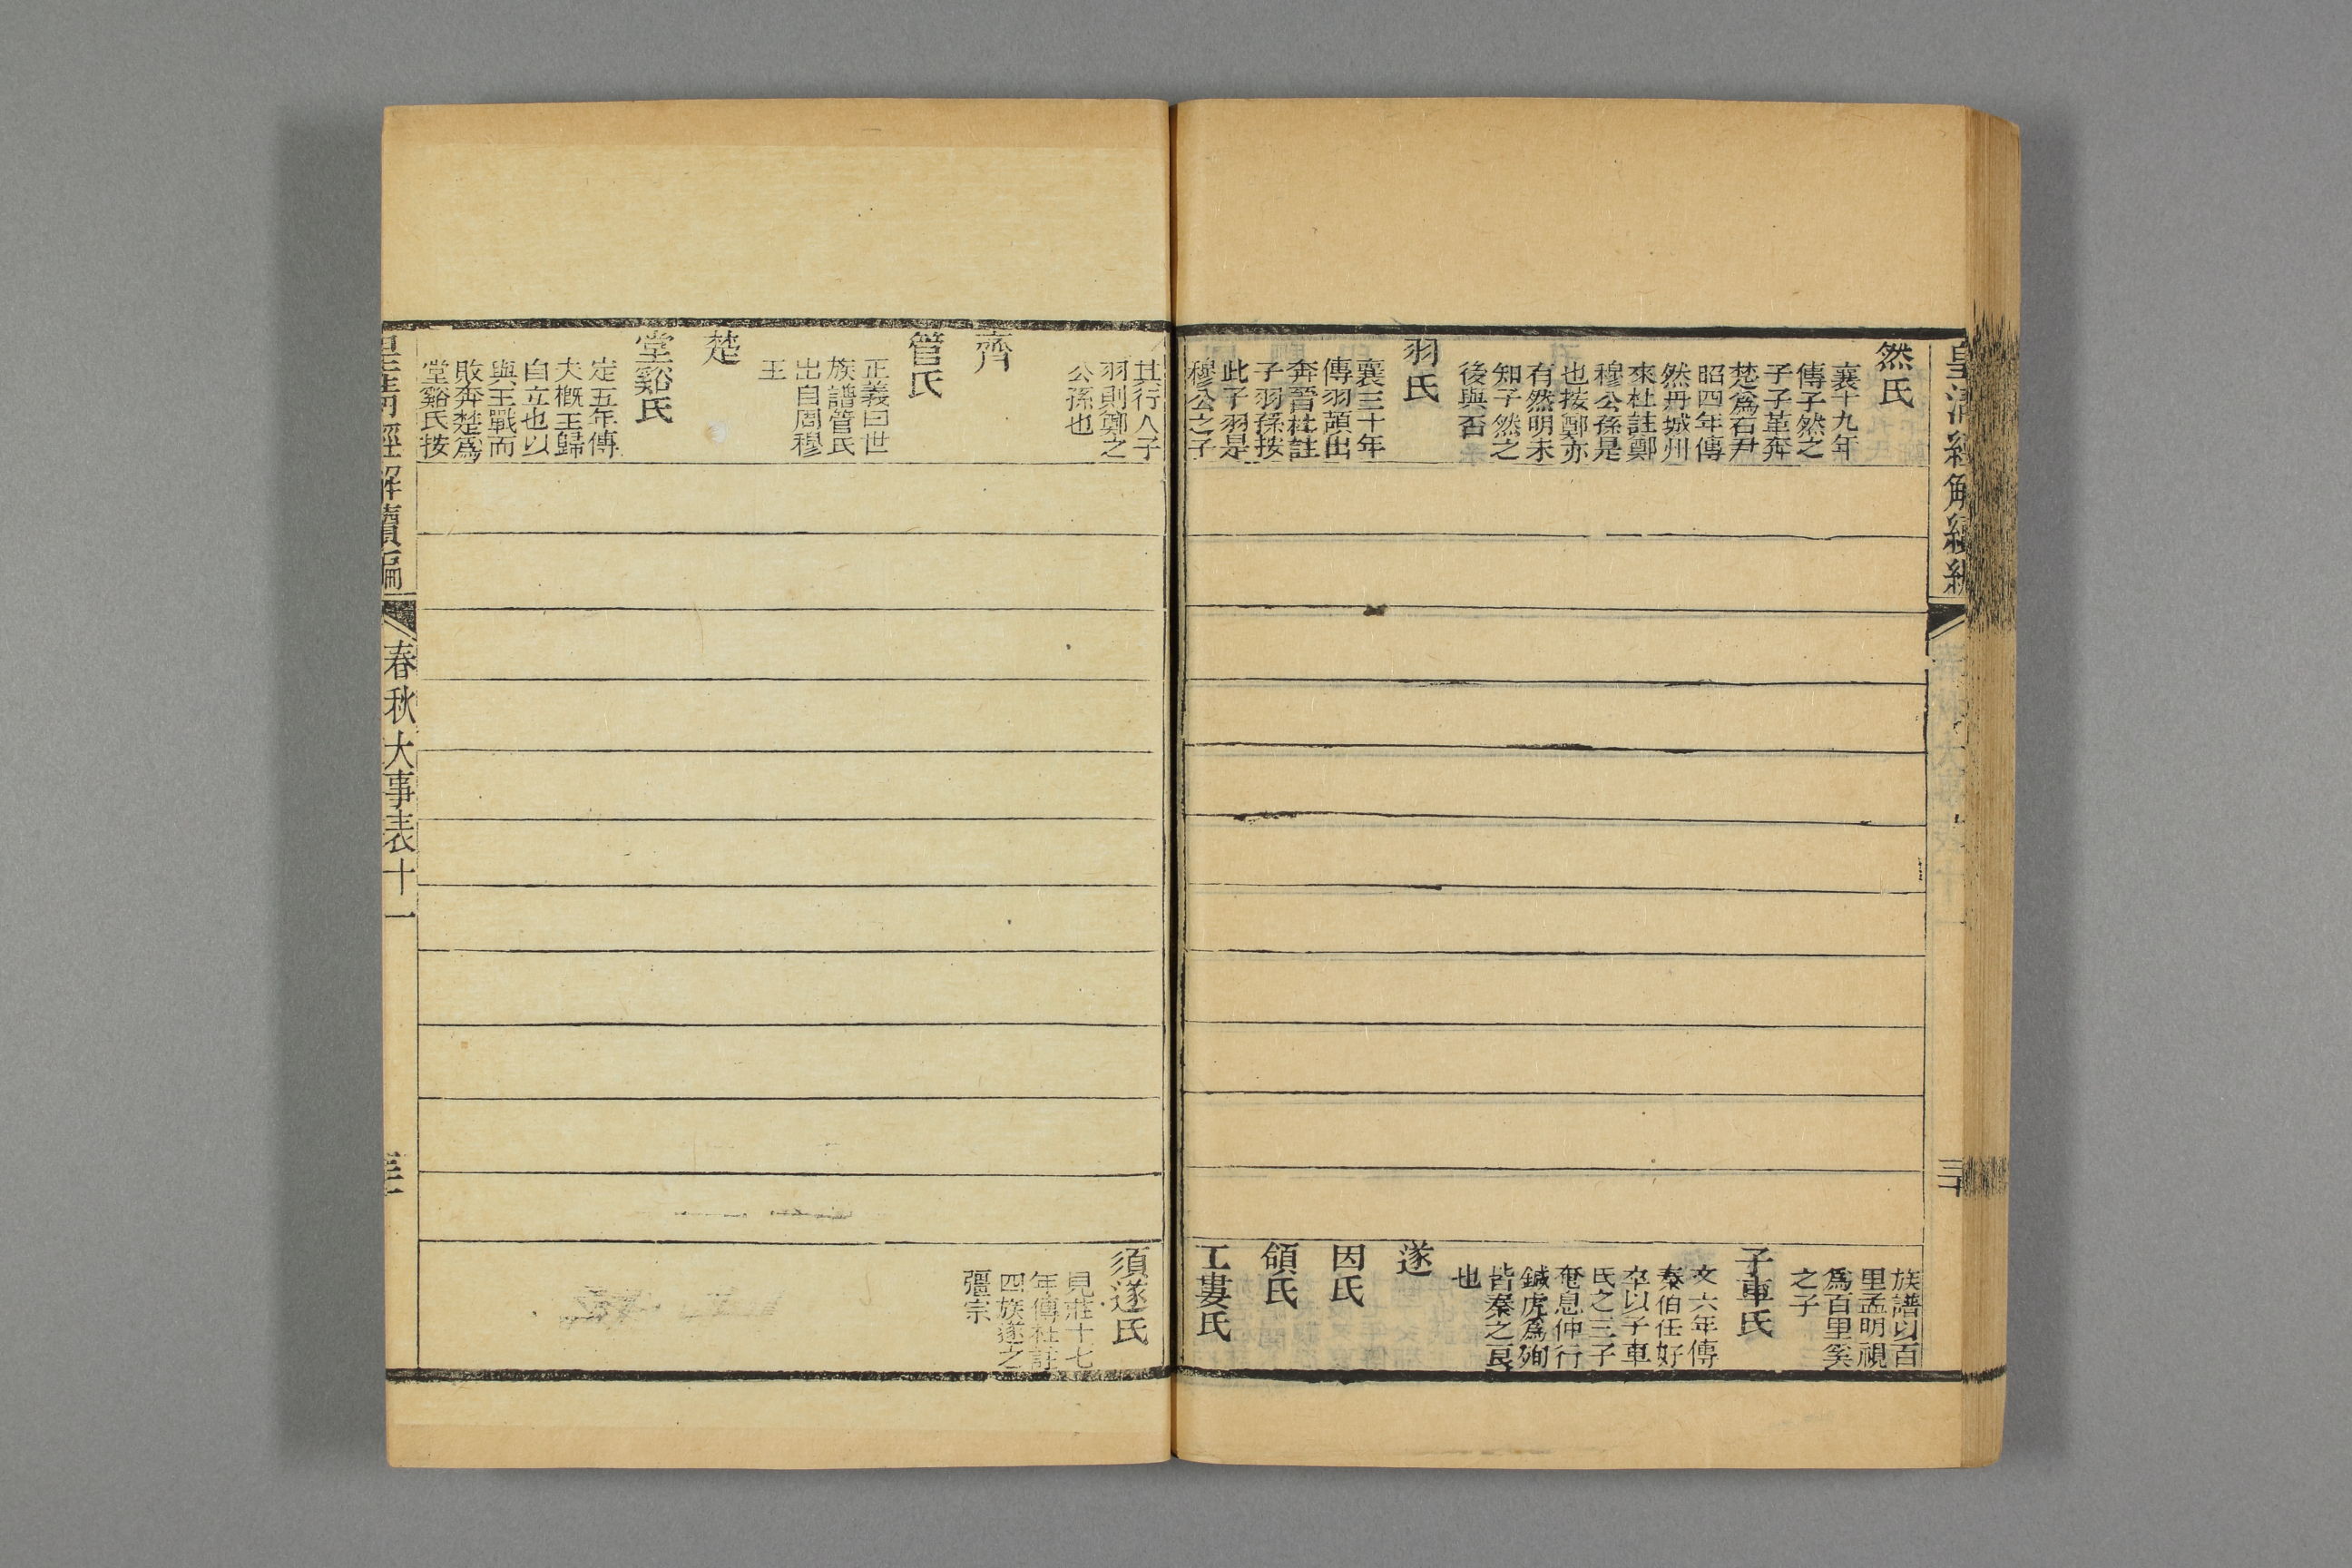 皇清經解續編
三十
然氏
襄十九年
傳子然之
子子革奔
楚爲右尹
昭四年傳
然丹城州
來杜註鄭
穆公孫是
也按鄭亦
有然明未
知子然之
後與否
羽氏
襄三十年
傳羽頡出
奔晉杜註
子羽孫按
此子羽是
穆公之子
族譜以百
里孟明視
爲百里奚
之子
子車氏
文六年傳
秦伯任好
卒以子車
氏之三子
奄息仲行
鍼虎爲殉
皆秦之良
也
遂
因氏
領氏
工婁氏
其行人子
羽則鄭之
公孫也
齊
管氏
正義曰世
族譜管氏
出自周穆
王
楚
堂谿氏
定五年傳
夫概王歸
自立也以
與王戰而
敗奔楚爲
堂谿氏按
須遂氏
見莊十七
年傳杜註
四族遂之
彊宗
皇清經解續編
春秋大事表十一